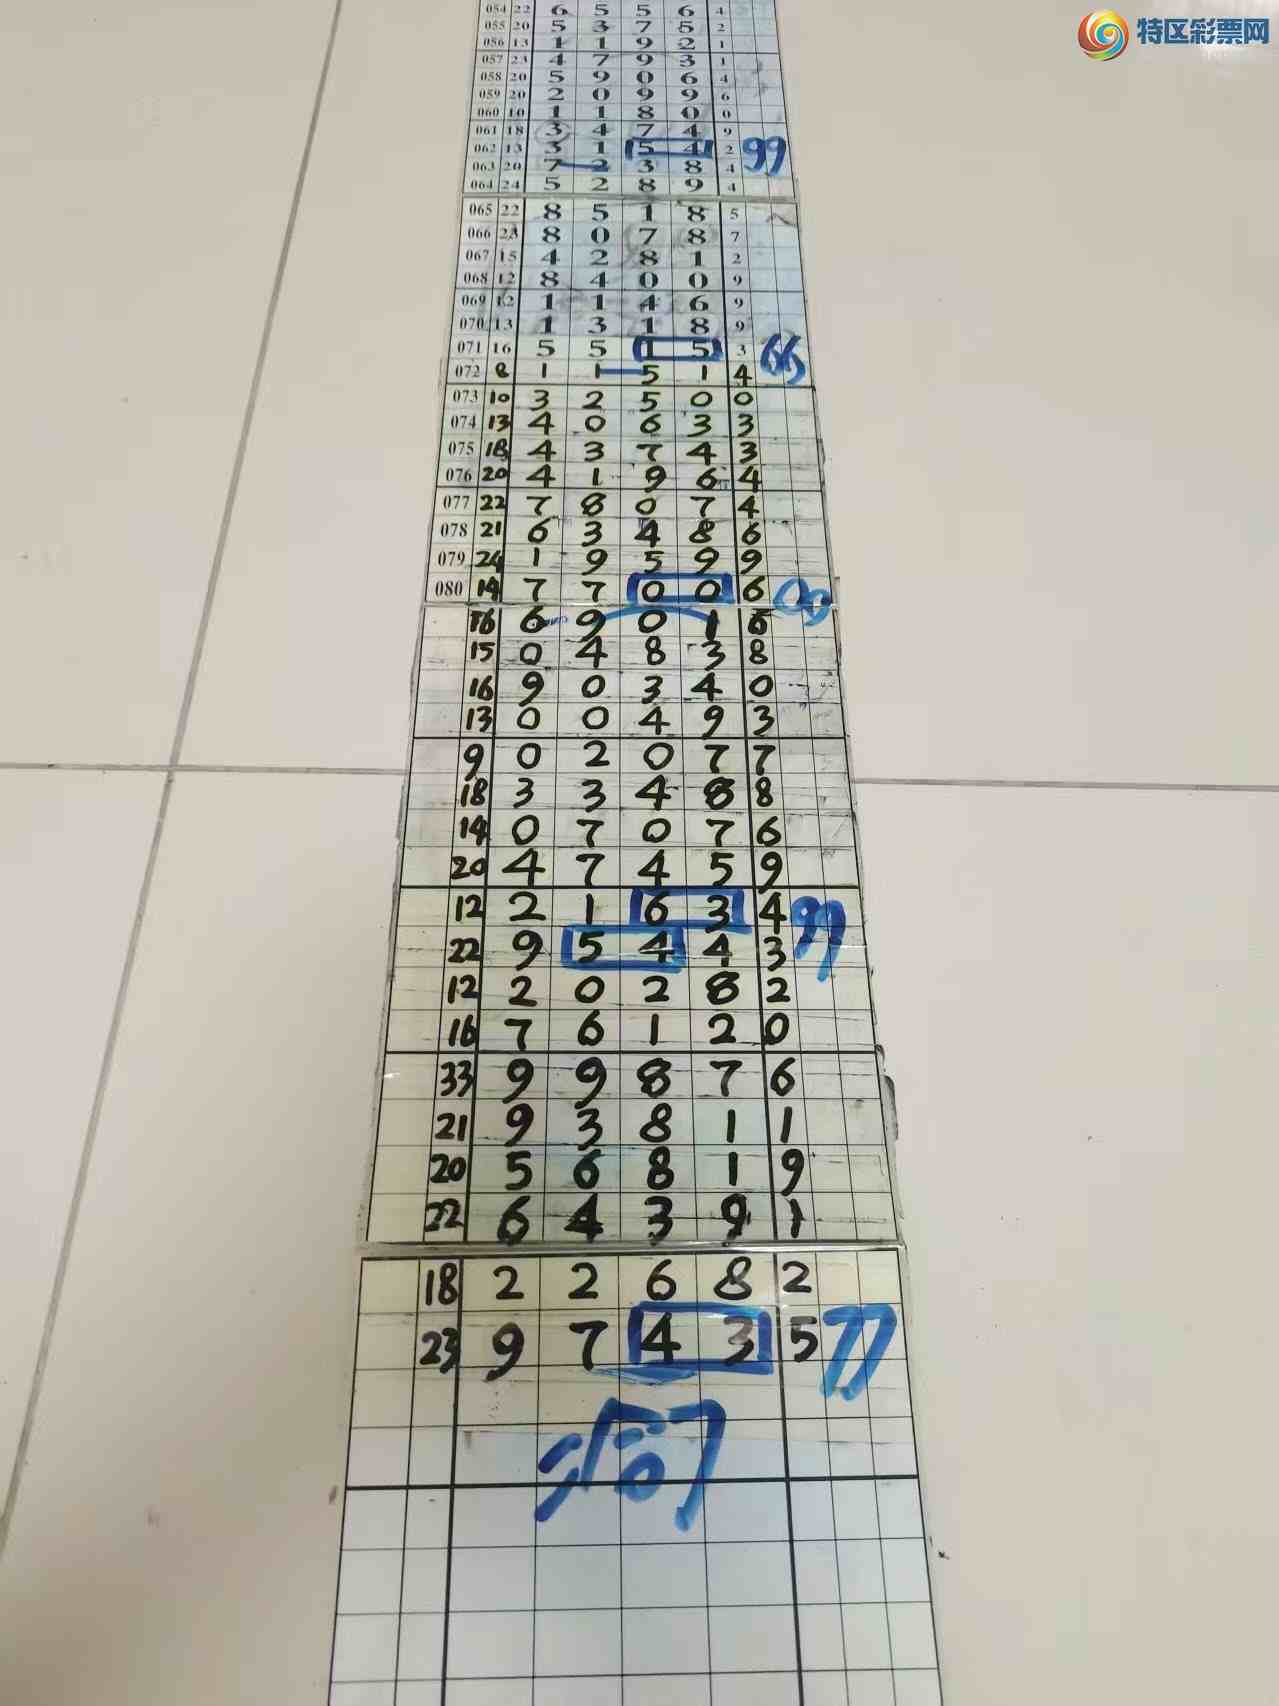 特区彩票网
054 22 6 5 5 6 4
055 20 5 3 7 5 2
056 13 1 1 9 2 1
057 23 4 7 9 3 1
058 20 5 9 0 6 4
059 20 2 0 9 9 6
060 10 1 1 8 0 0
061 18 3 4 7 4 9
062 13 3 1 5 4 2 99
063 20 7 2 3 8 4
064 24 5 2 8 9 4
065 22 8 5 1 8 5
066 23 8 0 7 8 7
067 15 4 2 8 1 2
068 12 8 4 0 0 9
069 12 1 1 4 6 9
070 13 1 3 1 8 9
071 16 5 5 1 5 3 66
072 8 1 1 5 1 4
073 10 3 2 5 0 0
074 13 4 0 6 3 3
075 18 4 3 7 4 3
076 20 4 1 9 6 4
077 22 7 8 0 7 4
078 21 6 3 4 8 6
079 24 1 9 5 9 9
080 14 7 7 0 0 6 00
16 6 9 0 1 6
15 0 4 8 3 8
16 9 0 3 4 0
13 0 0 4 9 3
9 0 2 0 7 7
18 3 3 4 8 8
14 0 7 0 7 6
20 4 7 4 5 9
12 2 1 6 3 4 99
22 9 5 4 4 3
12 2 0 2 8 2
16 7 6 1 2 0
33 9 9 8 7 6
21 9 3 8 1 1
20 5 6 8 1 9
22 6 4 3 9 1
18 2 2 6 8 2
23 9 7 4 3 5 77